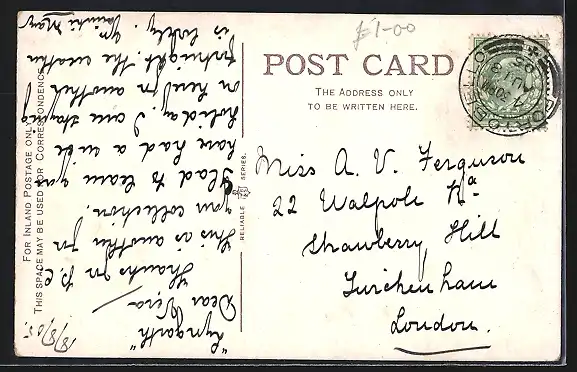 POST CARD
THE ADDRESS ONLY
TO BE WRITTEN HERE.
£1-00
FOR INLAND POSTAGE ONLY
THIS SPACE MAY BE USED FOR CORRESPONDENCE
RELIABLE SERIES.
"Lyngarth"
18/8/05.
Dear Vera
Thanks for P.C.
this is another for
your collection.
Glad to learn you
have had a nice
holiday. I am staying
on here for another
fortnight. The weather
is lovely.
Miss A. V. Ferguson
22 Walpole Rd
Strawberry Hill
Twickenham
London.